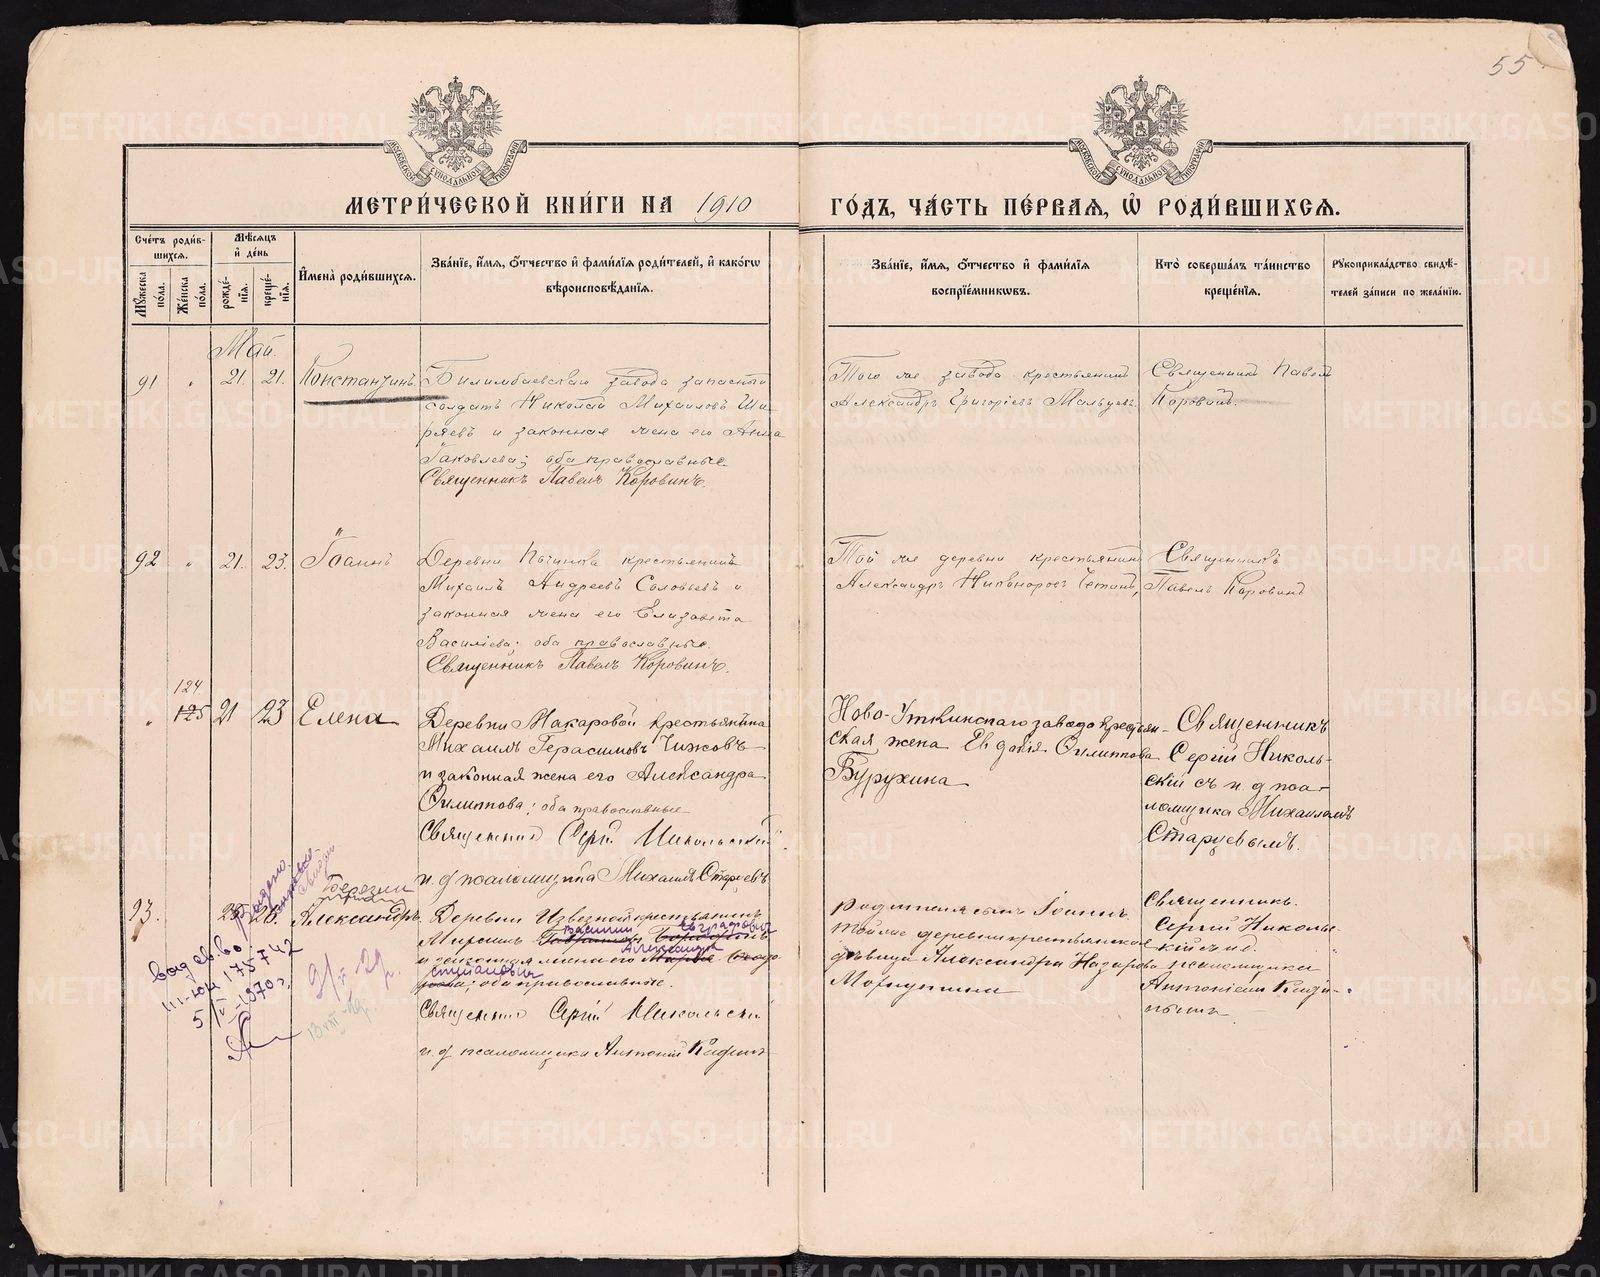 55
МЕТРИ́ЧЕСКОЙ КНИ́ГИ НА 1910 ГО́ДЪ, ЧА́СТЬ ПЕ́РВАЯ, Ѽ РОДИ́ВШИХСЯ.
Сче́тъ роди́вшихся.
Му́жеска по́ла.
Же́нска по́ла.
Мѣ́сяцъ и́ де́нь
рожде́нїя.
креще́нїя.
И҆мена̀ роди́вшихся.
Зва́нїе, и҆́мя, ѻ҆́тчество и҆ фами́лїя роди́телей, и҆ како́гѡ
вѣроисповѣ́данїя.
Зва́нїе, и҆́мя, ѻ҆́тчество и҆ фами́лїя
воспрїе́мникѡвъ.
Кто̀ соверша́лъ та́инство
креще́нїя.
Рꙋкоприкла́дство свидѣ́-
телей за́писи по жела́нїю.
Май.
91 " 21. 21. Константинъ.
Билимбаевскаго завода запасный
солдатъ Николай Михаиловъ Ши-
ряевъ и законная жена его Анна
Іаковлева; оба православные.
Священникъ Павелъ Коровинъ.
Того же завода крестьянинъ
Александръ Григоріевъ Мальцевъ.
Священникъ Павелъ
Коровинъ.
92 " 21. 23. Іоаннъ
Деревни крестьянинъ
Михаилъ Андреевъ Соловьевъ и
законная жена его Елизавета
Василіева; оба православные.
Священникъ Павелъ Коровинъ.
Той же деревни крестьянинъ
Александръ
Священникъ
Павелъ Коровинъ
124
" 125 21 23 Елена
Деревни Макаровой крестьянина
Михаилъ Герасимовъ Чижовъ
и законная жена его Александра
Филиппова; оба православные
Священникъ Сергій Никольскій
и. д. псаломщика Михаилъ Старцевъ
Ново-Уткинскаго завода крестьян-
ская жена Евдокія Филиппова
Бурухина
Священникъ
Сергій Николь-
скій съ и. д. пса-
ломщика Михаиломъ
Старцевымъ.
Березин
93. 25 26. Александръ.
Деревни Извезной крестьянинъ
Василий Евграфович
и законная жена его
Александра
Степановна
оба православные.
Священникъ Сергій Никольскій
и. д. псаломщика Антоній
родительсынъ Іоаннъ
той же деревни крестьянская
дѣвица Александра Назарова
Священникъ.
Сергій Николь-
скій съ и. д.
псаломщика
Антоніемъ
Выдано
III-ЮИ 175742
METRIKI.GASO-URAL.RU